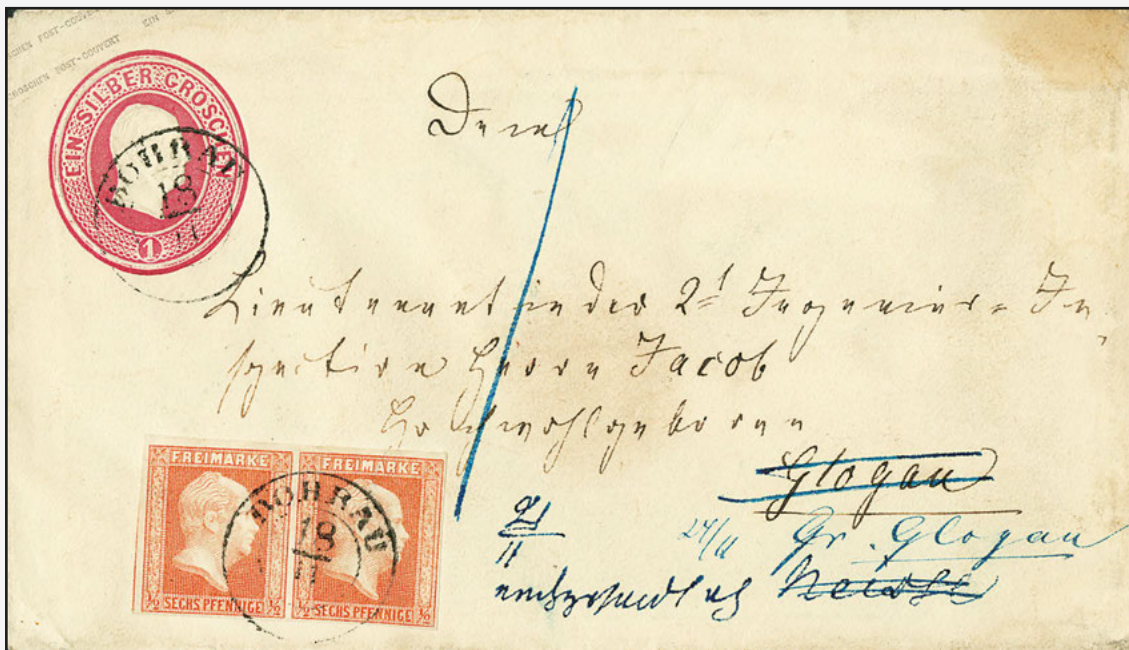 GROSCHEN POST-COUVERT EIN
GROSCHEN POST-COUVERT
EIN SILBER GROSCHEN
1
BOHRAU
18
11
Dem
Lieutenant in der 2t Ingenieur= In-
spection Herrn Jacob
Hochwohlgeboren
Glogau
21/11
24/11 Gr. Glogau
nachgesandt nach Neisse
FREIMARKE
½ SECHS PFENNIGE ½
FREIMARKE
½ SECHS PFENNIGE ½
BOHRAU
18
11